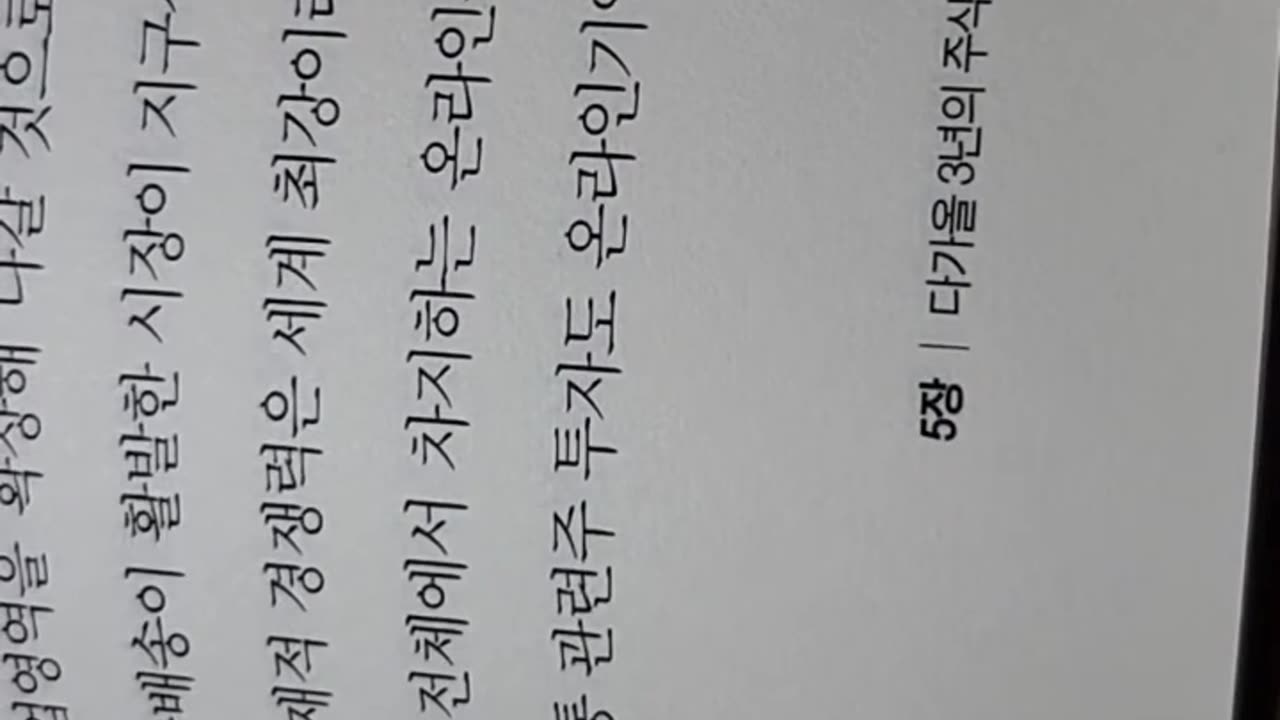 업영역을 확장해 나갈 것으로
배송이 활발한 시장이 지구
재적 경쟁력은 세계 최강이
전체에서 차지하는 온라인
통 관련주 투자도 온라인기
5장 | 다가올 3년의 주식